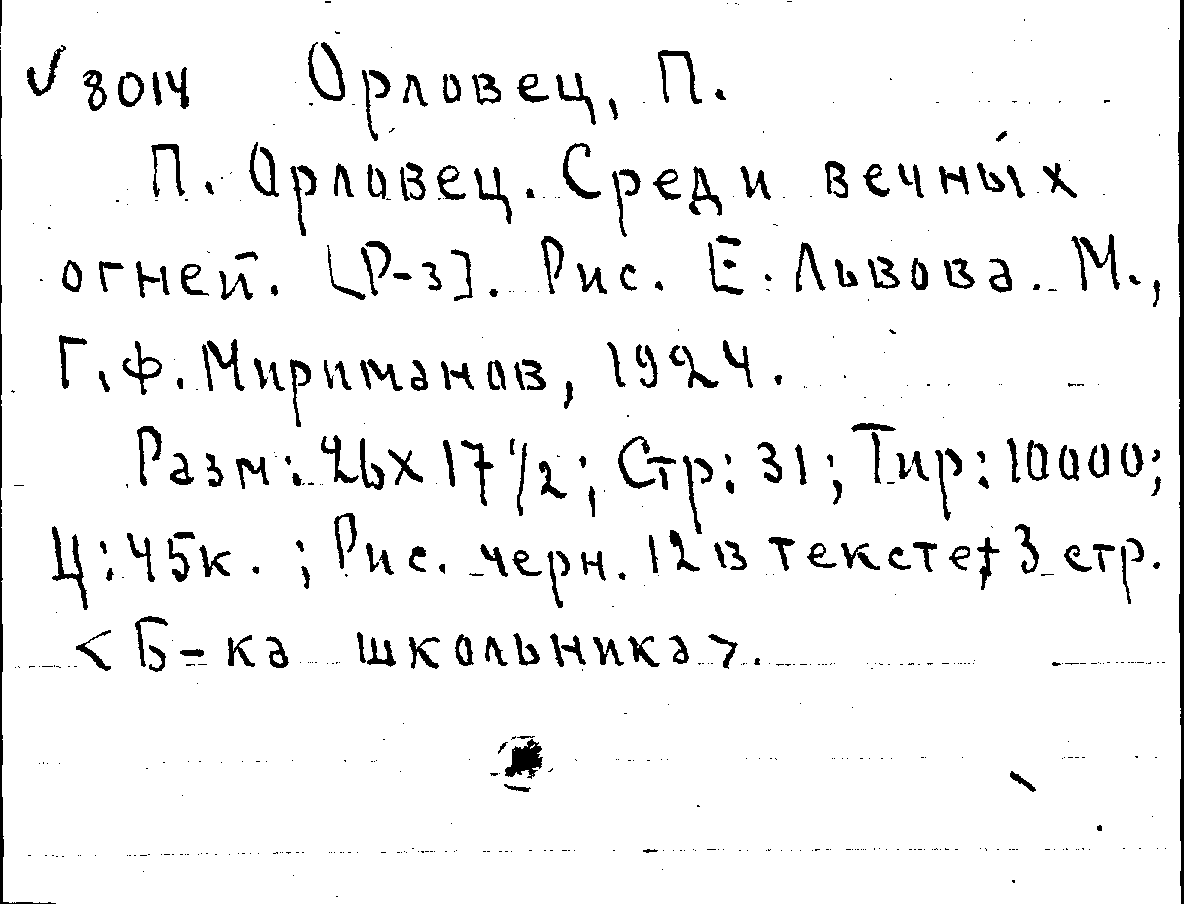 √ 8014 Орловец, П.
П. Орловец. Среди вечных
огней. [Р-з]. Рис. Е. Львова. М.,
Г.Ф. Мириманов, 1924.
Разм: 26х17 1/2; Стр: 31; Тир: 10000;
Ц: 45к.; Рис. черн. 12 в тексте+3 стр.
<Б-ка школьника>.